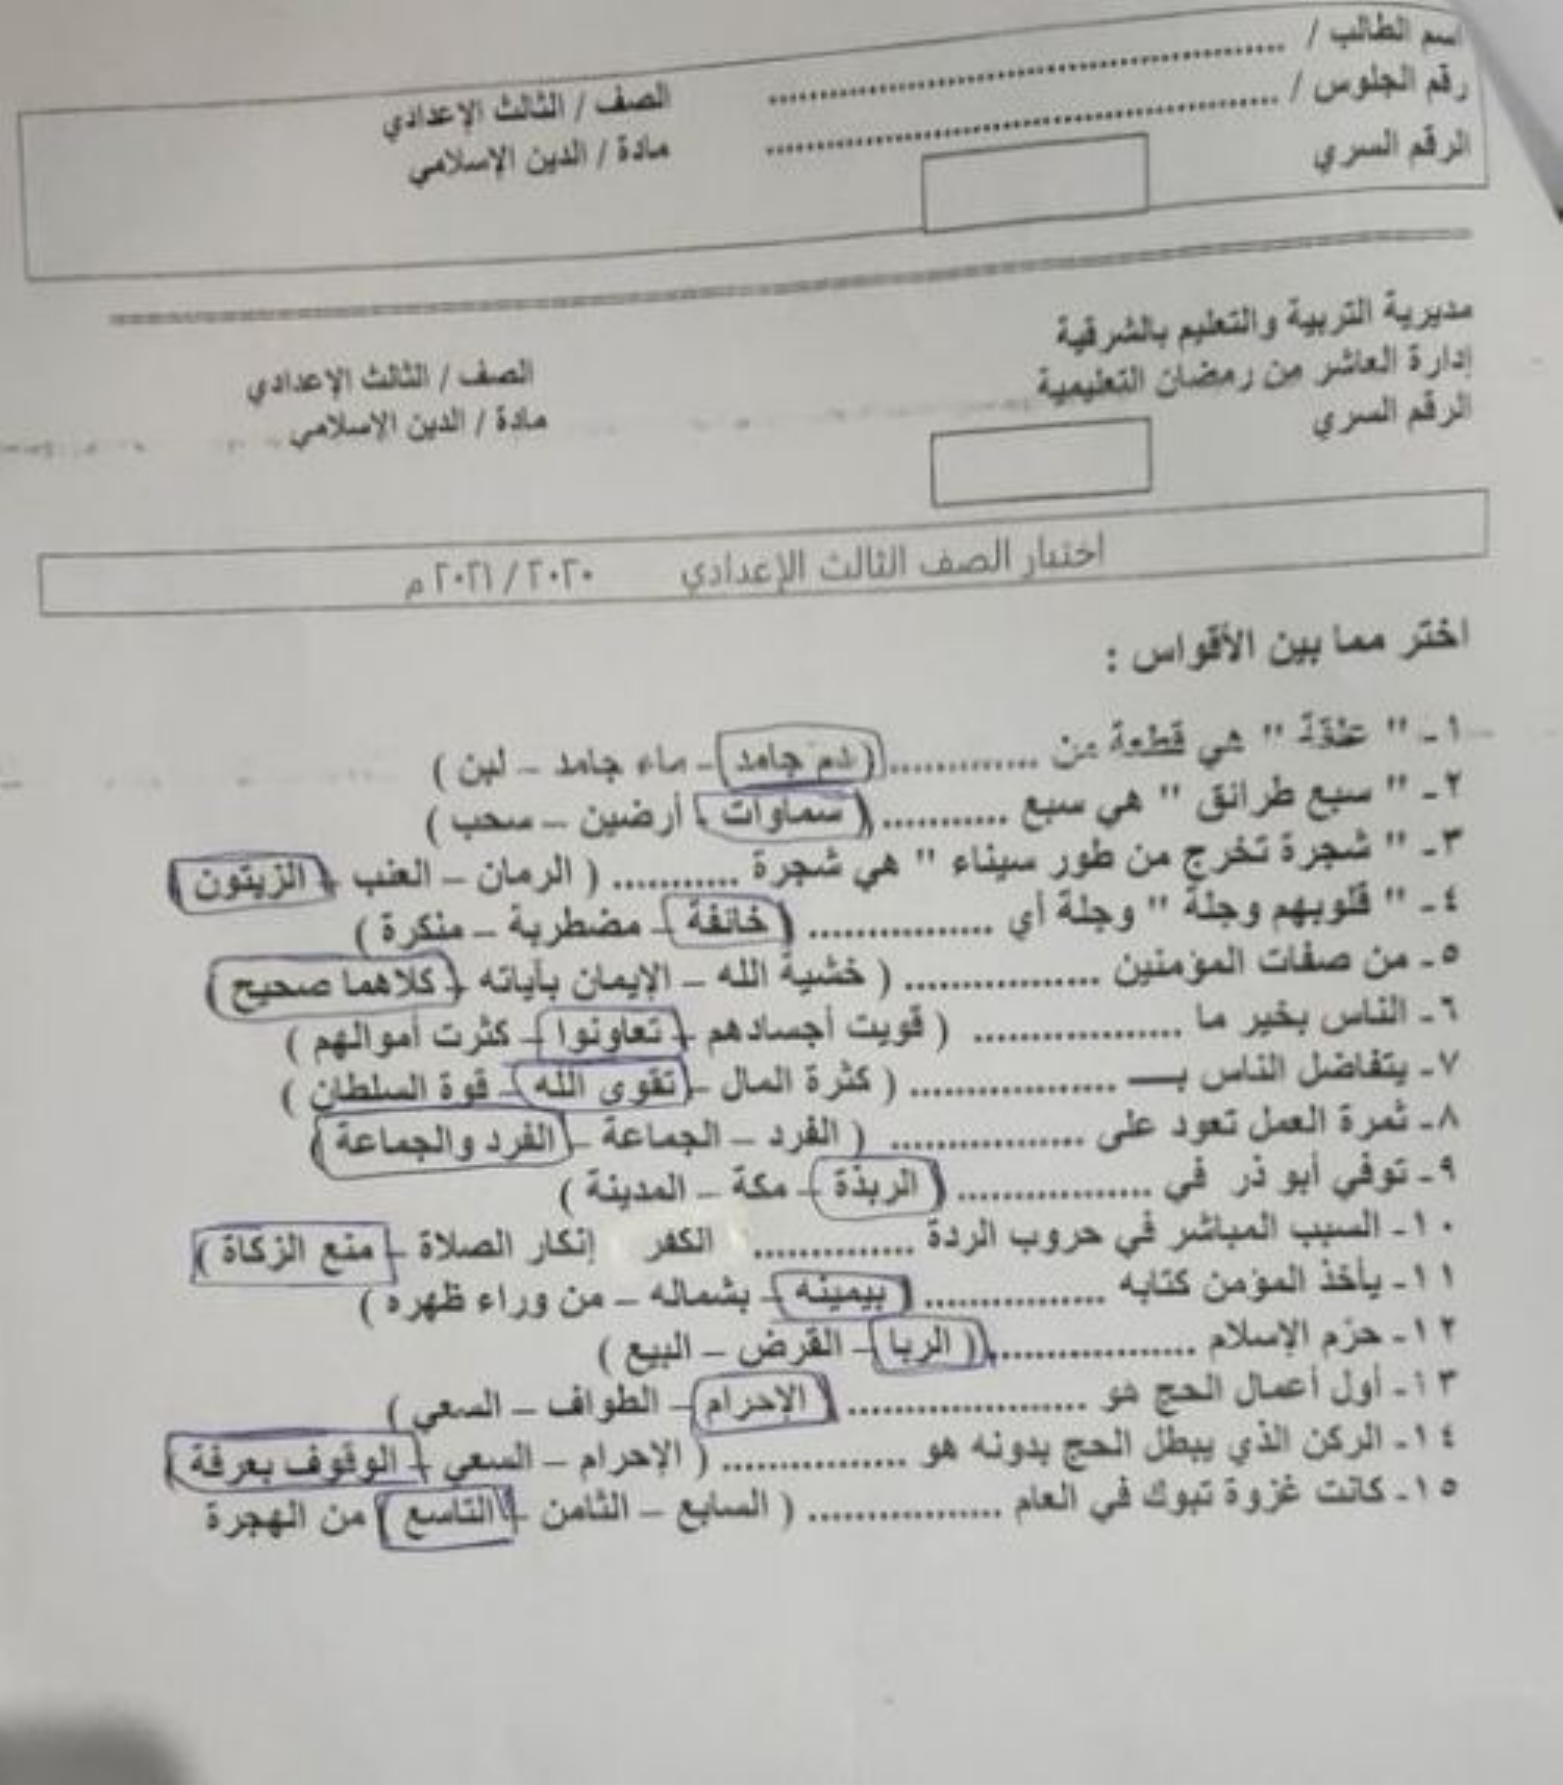 اسم الطالب / ........................................ الصف / الثالث الإعدادي
رقم الجلوس / ........................................ مادة / الدين الإسلامي
الرقم السري
مديرية التربية والتعليم بالشرقية
إدارة العاشر من رمضان التعليمية الصف / الثالث الإعدادي
الرقم السري مادة / الدين الاسلامي
اختبار الصف الثالث الإعدادي ٢٠٢٠ / ٢٠٢١ م
اختر مما بين الأقواس :
١- " علقة " هي قطعة من ............. ( دم جامد – ماء جامد – لبن )
٢- " سبع طرائق " هي سبع ........... ( سماوات – أرضين – سحب )
٣- " شجرة تخرج من طور سيناء " هي شجرة ........... ( الرمان – العنب – الزيتون )
٤- " قلوبهم وجلة " وجلة أي ................ ( خائفة – مضطربة – منكرة )
٥- من صفات المؤمنين ................. ( خشية الله – الإيمان بآياته – كلاهما صحيح )
٦- الناس بخير ما .................. ( قويت أجسادهم – تعاونوا – كثرت أموالهم )
٧- يتفاضل الناس بـــ .................. ( كثرة المال – تقوى الله – قوة السلطان )
٨- ثمرة العمل تعود على ................. ( الفرد – الجماعة – الفرد والجماعة )
٩- توفي أبو ذر في ................. ( الربذة – مكة – المدينة )
١٠- السبب المباشر في حروب الردة .............. الكفر إنكار الصلاة – منع الزكاة )
١١- يأخذ المؤمن كتابه ................ ( بيمينه – بشماله – من وراء ظهره )
١٢- حرم الإسلام .................. ( الربا – القرض – البيع )
١٣- أول أعمال الحج هو ..................... ( الإحرام – الطواف – السعي )
١٤- الركن الذي يبطل الحج بدونه هو ................ ( الإحرام – السعي – الوقوف بعرفة )
١٥- كانت غزوة تبوك في العام ................. ( السابع – الثامن – التاسع ) من الهجرة